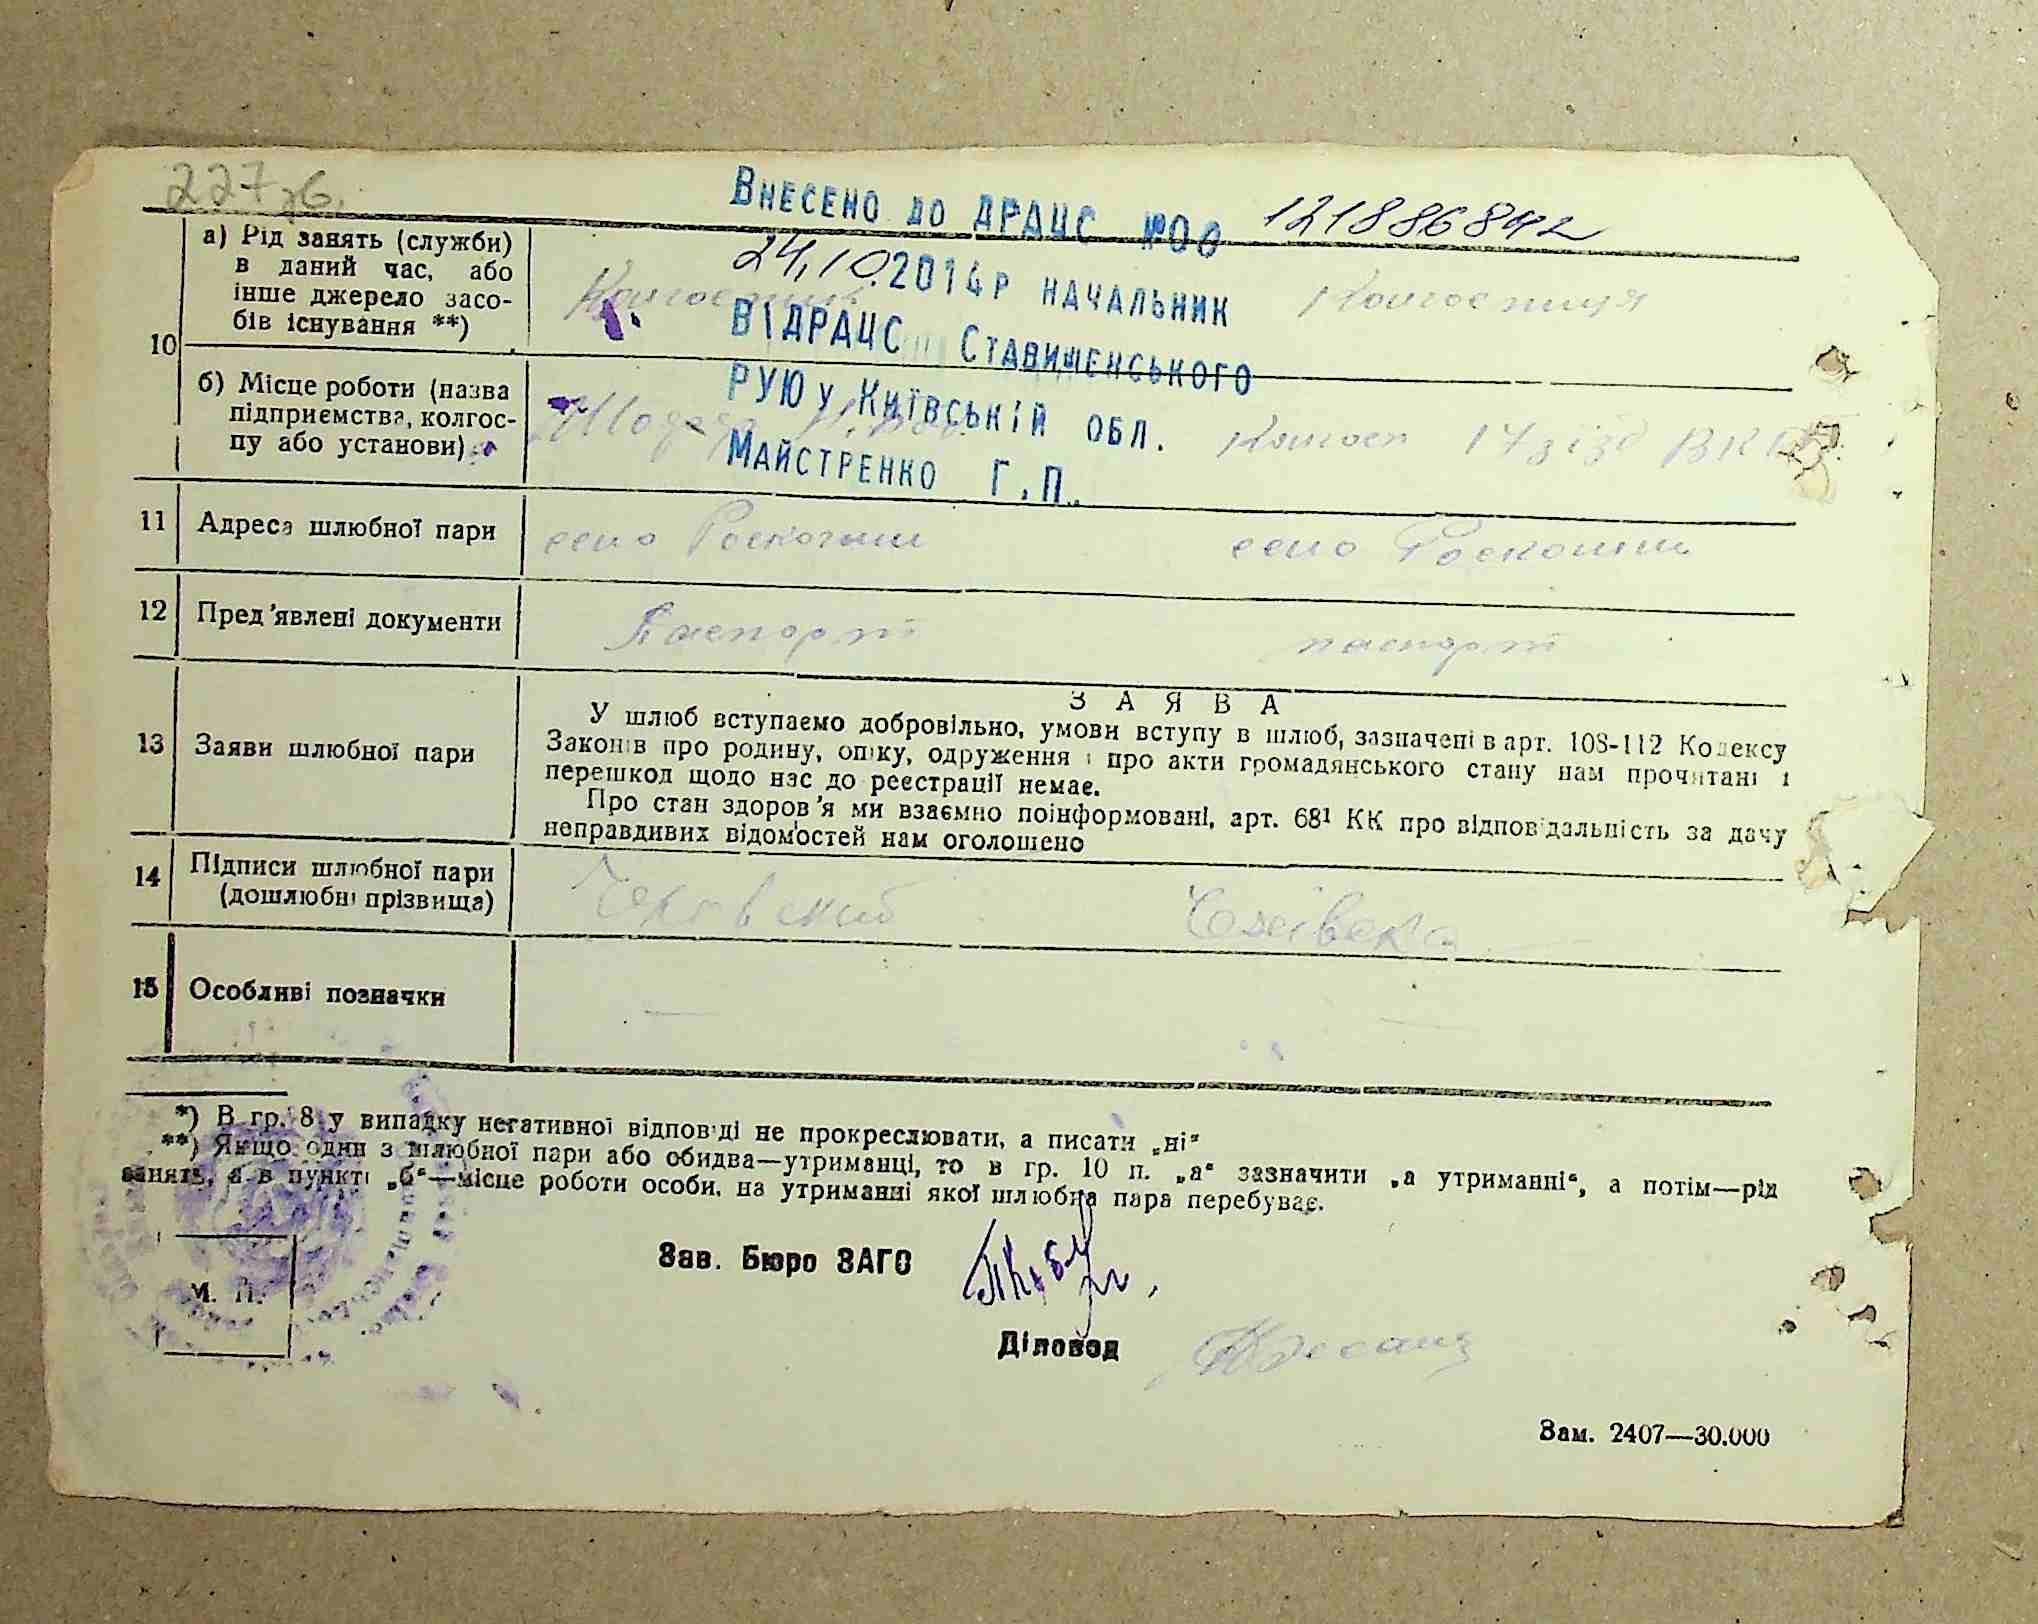 227 зв.
Внесено до ДРАЦС №00 121886842
24.10.2014р начальник
ВІДРАЦС Ставищенського
РУЮ у Київській обл.
Майстренко Г.П.
10
а) Рід занять (служби)
в даний час, або
інше джерело засо-
бів існування **)
Колгоспник Колгоспниця
б) Місце роботи (назва
підприємства, колгос-
пу або установи)
Колгосп 17 зїзд ВКП
11 Адреса шлюбної пари село Роскошни село Роскошни
12 Пред'явлені документи Паспорт паспорт
13 Заяви шлюбної пари
ЗАЯВА
У шлюб вступаємо добровільно, умови вступу в шлюб, зазначені в арт. 108-112 Кодексу
Законів про родину, опіку, одруження і про акти громадянського стану нам прочитані і
перешкод щодо нас до реєстрації немає.
Про стан здоров'я ми взаємно поінформовані, арт. 68¹ КК про відповідальність за дачу
неправдивих відомостей нам оголошено
14 Підписи шлюбної пари
(дошлюбні прізвища)
15 Особливі позначки
*) В гр. 8 у випадку негативної відповіді не прокреслювати, а писати „ні“
**) Якщо один з шлюбної пари або обидва—утриманці, то в гр. 10 п. „а“ зазначити „а утриманні“, а потім—рід
занять, а в пункті „б“—місце роботи особи, на утриманні якої шлюбна пара перебуває.
Зав. Бюро ЗАГС
М. П.
Діловод
Зам. 2407—30.000